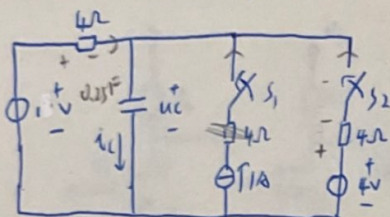 4Ω
+ -
+
V
-
0.25F
+
uc
-
ic
S₁
4Ω
1A
-
S₂
-
4Ω
+
+
4V
-